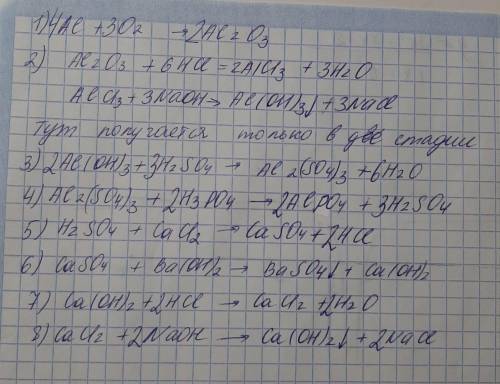 1) 4Al + 3O2 → 2Al2O3
2) Al2O3 + 6HCl = 2AlCl3 + 3H2O
AlCl3 + 3NaOH → Al(OH)3↓ + 3NaCl
Тут получается только в две стадии
3) 2Al(OH)3 + 3H2SO4 → Al2(SO4)3 + 6H2O
4) Al2(SO4)3 + 2H3PO4 → 2AlPO4 + 3H2SO4
5) H2SO4 + CaCl2 → CaSO4 + 2HCl
6) CaSO4 + Ba(OH)2 → BaSO4↓ + Ca(OH)2
7) Ca(OH)2 + 2HCl → CaCl2 + 2H2O
8) CaCl2 + 2NaOH → Ca(OH)2↓ + 2NaCl